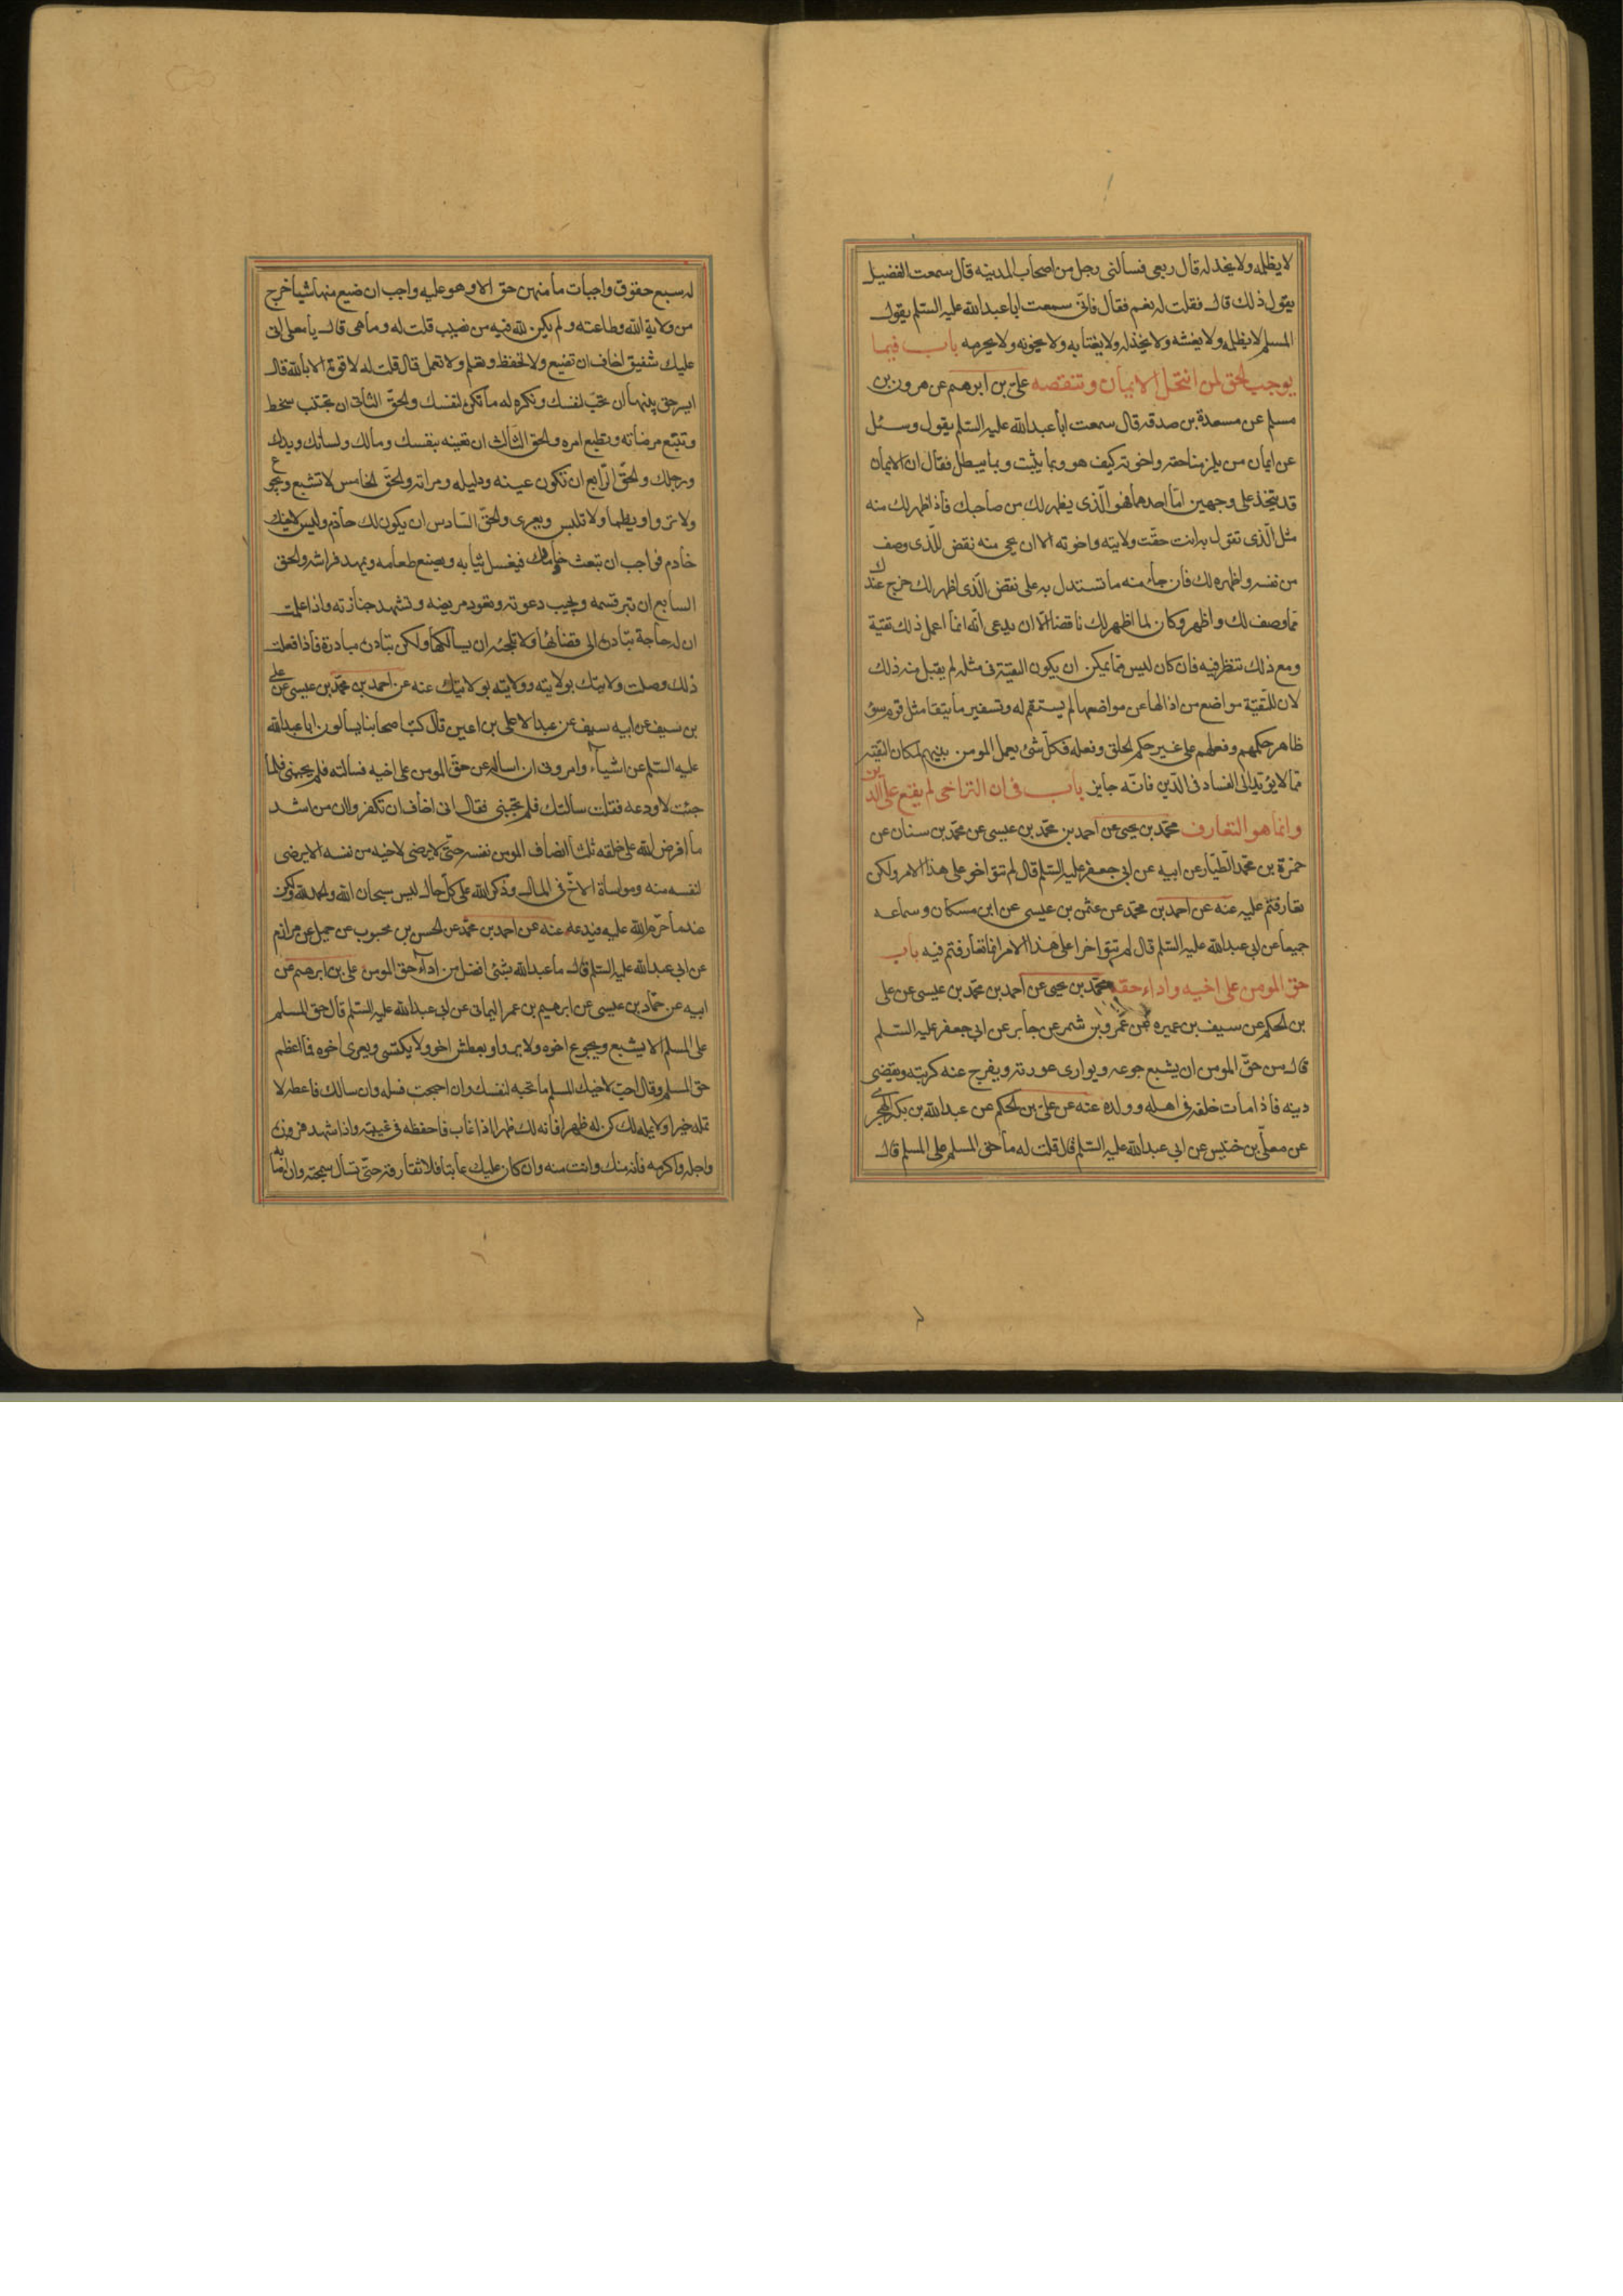 لا يظلمه ولا يخذله قال ربعى فسألنى رجل من اصحاب المدينه قال سمعت الفضيل
يقول ذلك قال فقلت له نعم فقال فانى سمعت ابا عبدالله عليه السلم يقول
المسلم لا يظلمه ولا يغشه ولا يخذله ولا يغتابه ولا يخونه ولا يحرمه باب فيما
يوجب الحق لمن انتحل الايمان وتنقصه على بن ابرهيم عن هرون بن
مسلم عن مسعدة بن صدقه قال سمعت أبا عبدالله عليه السلم يقول وسئل
عن ايمان من يلزمنا حقه واخوته كيف هو وبما يثبت وبما يبطل فقال ان الايمان
قد يتخذ على وجهين امّا احدهما فهو الّذى يظهر لك من صاحبك فاذا ظهر لك منه
مثل الّذى تقول به انت حقّت ولايته واخوته الا ان يجى منه نقض للّذى وصف
من نفسه واظهره لك فان جاء منه ما تستدل به على نقض الّذى اظهر لك خرج عندك
مما وصف لك واظهر وكان لما اظهر لك ناقضا الّا ان يدعى انّه انما اعمل ذلك تقيّة
ومع ذلك تنظر فيه فان كان ليس مما يمكن ان يكون التقيّة فى مثله لم يقبل منه ذلك
لان للتّقيّة مواضع من ازالها عن مواضعها لم يستقم له وتسفير ما يتقا مثل قوم سوء
ظاهر حكمهم وفعلهم على غير حكم الحق وفعله فكلّ شئ يعمل المومن بينهم لمكان التّقيّه
مما لا يؤدّى الى الفساد فى الدّين فانّه جايز باب فى ان التراخى لم يقع على الدّين
وانما هو التعارف محمّد بن يحيى عن احمد بن محمّد بن عيسى عن محمّد بن سنان عن
حمزة بن محمّد الطيّار عن ابيه عن ابى جعفر عليه السّلم قال لم تتواخو على هذا الامر ولكن
تعارفتم عليه عنه عن احمد بن محمّد عن عثمن بن عيسى عن ابن مسكان وسماعه
جميعا عن ابى عبدالله عليه السّلم قال لم تتواخوا على هذا الامر انما تعارفتم فيه باب
حق المومن على اخيه واداء حقه محمّد بن يحيى عن احمد بن محمّد بن عيسى عن على
بن الحكم عن سيف بن عميره عن عمرو بن شمر عن جابر عن ابى جعفر عليه السّلم
قال من حقّ المومن ان يشبع جوعه ويوارى عورته ويفرج عنه كربته ويقضى
دينه فاذا مات خلفه فى اهله وولده عنه عن على بن الحكم عن عبدالله بن بكير الهجرى
عن معلّى بن خنيس عن ابى عبدالله عليه السّلم قال قلت له ما حق المسلم على المسلم قال
له سبع حقوق واجبات ما منهن حق الا وهو عليه واجب ان ضيع منها شيا خرج
من ولاية الله وطاعته ولم يكن لله فيه من نصيب قلت له وما هى قال يا معلى انى
عليك شفيق اخاف ان تضيع ولا تحفظ وتعلم ولا تعمل قال قلت له لا قوة الا بالله قال
ايسر حق منها أن تحبّ لنفسك وتكره له ما تكره لنفسك والحقّ الثانى ان تجتنب سخطه
وتتبّع مرضاته وتطيع امره والحق الثّالث ان تعينه بنفسك ومالك ولسانك ويدك
ورجلك والحقّ الرّابع ان تكون عينه ودليله ومراته والحقّ الخامس لا تشبع ويجوع
ولا تروا ويظما ولا تلبس ويعرى والحقّ السّادس ان يكون لك خادم وليس لاخيك
خادم فواجب ان تبعث خادمك فيغسل ثيابه ويصنع طعامه ويمهد فراشه والحق
السابع ان تبر قسمه وتجيب دعوته وتعود مريضه وتشهد جنازته واذا علمت
ان له حاجة تبادره الى قضائها ولا تلجئه ان يسالكها ولكن تبادره مبادرة فاذا فعلت
ذلك وصلت ولايتك بولايته وولايته بولايتك عنه عن احمد بن محمّد بن عيسى عن على
بن سيف عن ابيه سيف عن عبد الاعلى بن اعين قال كتب اصحابنا يسالون ابا عبدالله
عليه السّلم عن اشياء وامرونى ان اساله عن حقّ المومن على اخيه فسالته فلم يجبنى فلما
جئت لاودعه فقلت سالتك فلم تجبنى فقال انى اخاف ان تكفروا ان من اشد
ما افرض الله على خلقه ثلثا انصاف المومن نفسه حتّى لا يرضى لاخيه من نفسه الا يرضى
لنفسه منه ومواساة الاخّ فى المال وذكر الله على كلّ حال ليس سبحان الله والحمد لله ولكن
عند ما حرّم الله عليه فيدعه عنه عن احمد بن محمّد عن الحسن بن محبوب عن جميل عن مرازم
عن ابى عبدالله عليه السّلم قال ما عبدالله بشئ افضل من اداء حق المومن على بن ابرهيم عن
ابيه عن حمّاد بن عيسى عن ابرهيم بن عمر اليمانى عن ابى عبدالله عليه السّلم قال حق المسلم
على المسلم الا يشبع ويجوع اخوه ولا يروا ويعطش اخو ولا يكتسى ويعرى اخوه فما اعظم
حق المسلم وقال احبّ لاخيك المسلم ما تحبه لنفسك وان احتجت فسله وان سالك فاعطه لا
تمله خيرا ولا يمله لك كن له ظهرا فانه لك ظهر اذا غاب فاحفظه فى غيبته واذا شهد فزوره
واجله واكرمه فانه منك وانت منه وان كان عليك عاتبا فلا تفارقه حتّى تسأل سميحته وان اصابه